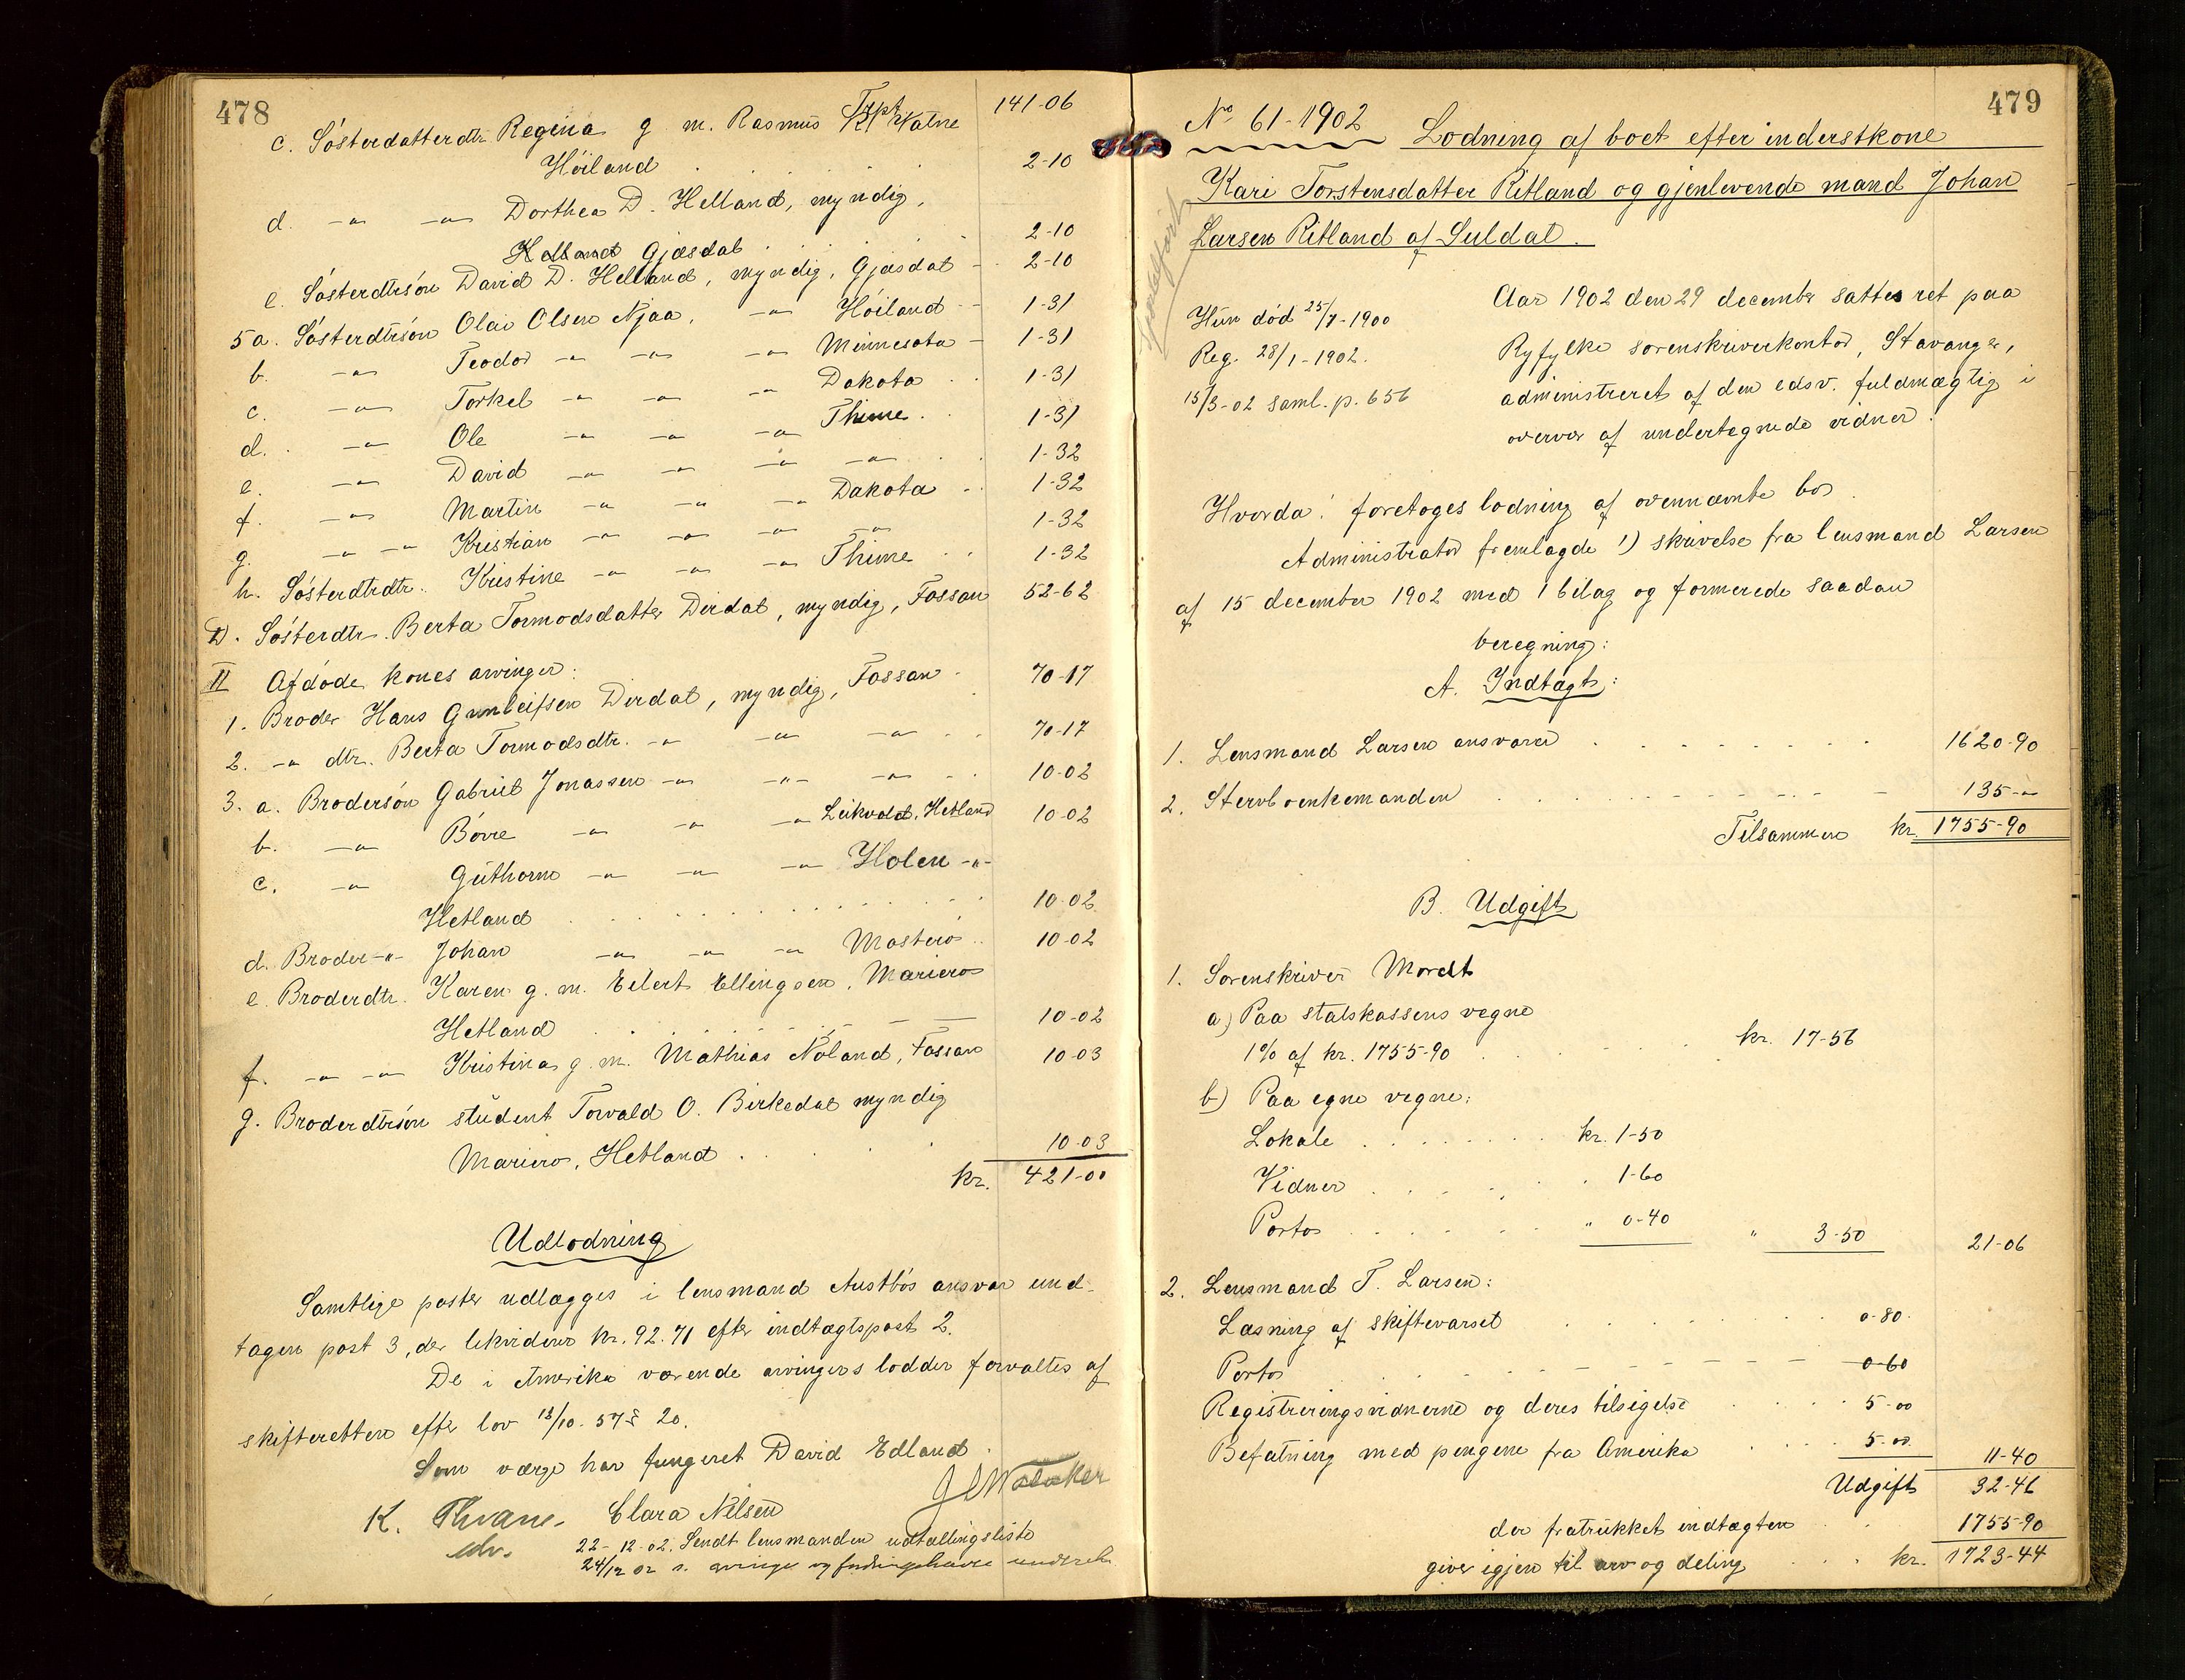 478
Trpt. 141-06
c. Søsterdatterdtr Regina g. m. Rasmus K. Watne
Høiland 2-10
d. -"- -"- Dorthea D. Helland, myndig,
Helland Gjæsdal 2-10
e. Søsterdtrsøn David D. Helland, myndig, Gjæsdal - 2-10
5a. Søsterdtrsøn Olai Olsen Njaa, -"- Høiland - 1-31
b. -"- Teodor -"- -"- -"- Minnesota - 1-31
c. -"- Torkel -"- -"- -"- Dakota . . 1-31
d. -"- Ole -"- -"- -"- Thime . 1-31
e. -"- David -"- -"- -"- -"- . 1-32
f. -"- Martin -"- -"- -"- Dakota . . 1-32
g. -"- -"- Kristian -"- -"- -"- -"- 1-32
h. Søsterdtrdtr. Kristine -"- -"- -"- Thime . . 1-32
D. Søsterdtr. Berta Tormodsdatter Dirdal, myndig, Fossan 52-62
II Afdøde kones arvinger:
1. Broder Hans Gunleifsen Dirdal, myndig, Fossan - 70-17
2. -"- dtr. Berta Tormodsdtr. -"- -"- -"- . . 70-17
3. a. Brodersøn Gabriel Jonassen -"- -"- -"- - . 10-02
b. -"- Børre -"- -"- -"- Leikvold, Hetland 10-02
c. -"- Guthorm -"- -"- -"- Holen -"-
Hetland 10-02
d. Broder -"- Johan -"- -"- -"- Mosterø . . 10-02
e. Broderdtr. Karen g. m. Eilert Ellingsen, Mariero
Hetland 10-02
f. -"- -"- Kristina g. m. Mathias Nåland, Fossan 10-03
g. Broderdtrsøn student Torvald O. Birkedal myndig
Mariero, Hetland . . . 10-03
kr. 421-00
Udlodning
Samtlige poster udlægges i lensmand Austbøs ansvar und-
tagen post 3, der likviderer kr. 92.71 efter indtægtspost 2.
De i Amerika værende arvingers lodder forvaltes af
skifteretten efter lov 13/10. 57 § 20.
Som værge har fungeret David Edland.
K. Thrane. Clara Nilsen
edv.
22-12-02. Sendt lensmanden udtællingsliste
24/12 02 s. arvinge og
479
No 61-1902 Lodning af boet efter inderstkone
Kari Torstensdatter Ritland og gjenlevende mand Johan
Larsen Ritland af Suldal.
Hun død 25/7-1900
Reg. 28/1-1902.
15/3-02 saml. p. 656
Aar 1902 den 29 december sattes ret paa
Ryfylke sorenskriverkontor, Stavanger,
administreret af den edsv. fuldmægtig i
overvær af undertegnede vidner.
Hvorda! foretoges lodning af ovennævnte bo.
Administrator fremlagde 1) skrivelse fra lensmand Larsen
af 15 december 1902 med 1 bilag og formerede saadan
beregning:
A. Indtægt:
1. Lensmand Larsen ansvarer . . . . . . . . 1620-90
2. Stervboenkemanden . . . . . . . . 135-"-
Tilsammen kr. 1755-90
B. Udgift
1. Sorenskriver Mordt
a) Paa statskassens vegne
1% af kr. 1755-90 . . . . kr. 17-56
b) Paa egne vegne:
Lokale . . . . . . . kr. 1-50
Vidner . . . . . . 1-60
Porto . . . . . " 0-40 " 3-50 21-06
2. Lensmand T. Larsen:
Læsning af skiftevarsel . . . . . . 0-80.
Porto . . . . . . 0-60
Registreringsvidnerne og deres tilsigelse . . . . 5-00
Befatning med pengene fra Amerika . . . . 5-00 11-40
Udgift 32-46
der fratrukket indtægten . . 1755-90
giver igjen til arv og deling . . . kr. 1723-44